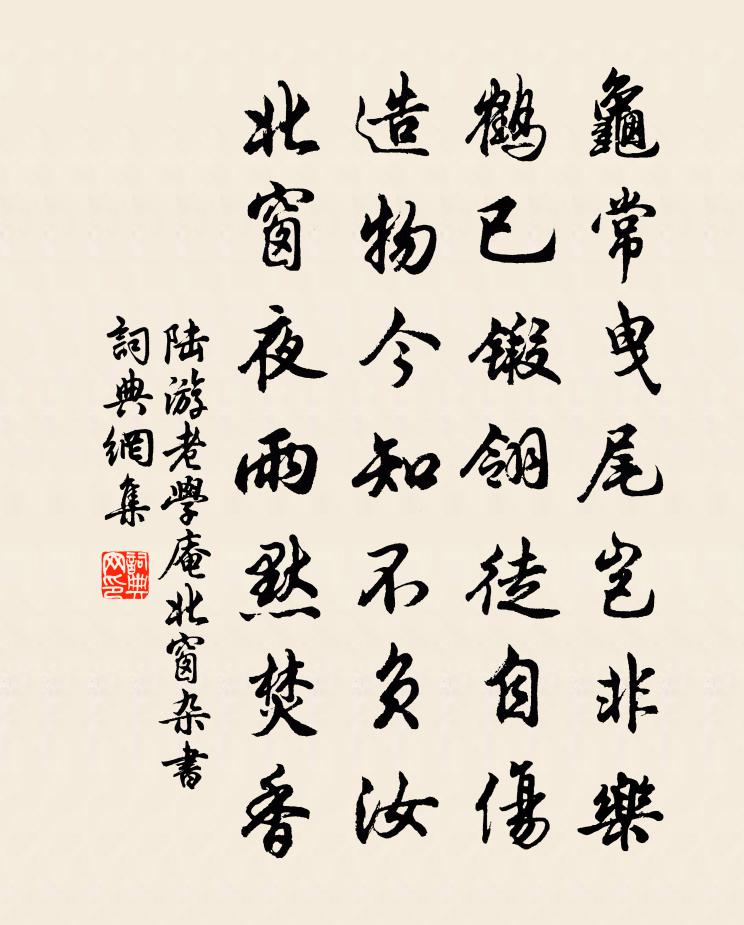 龜常曳尾豈非樂
鶴已鎩翎徒自傷
造物今知不負汝
北窗夜雨默焚香
陸游老學庵北窗杂書
詞典網集
詞典网印